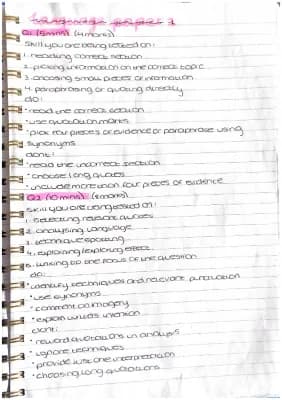 language paper 1
Q1 (5mins) (4marks)
Skill you are being tested on:
1. reading correct section
2. picking information on the correct topic
3. choosing small pieces of information
4. paraphrasing or quoting directly
do:
• read the correct section
• use quotation marks
• pick four pieces of evidence or paraphrase using
synonyms
dont:
• read the incorrect section
• choose long quotes
• include more than four pieces of evidence
Q2 (10mins) (8marks)
Skill you are being tested on:
1. selecting relevant quotes
2. analysing language
3. technique spotting
4. explaining/exploring effect
5. linking to the focus of the question
do:
• identify techniques and relevant quotation
• use synonyms
• comment on imagery
• explain writers intention
dont:
• reword quotations in analysis
• ignore techniques
• provide just one interpretation
• choosing long quotations